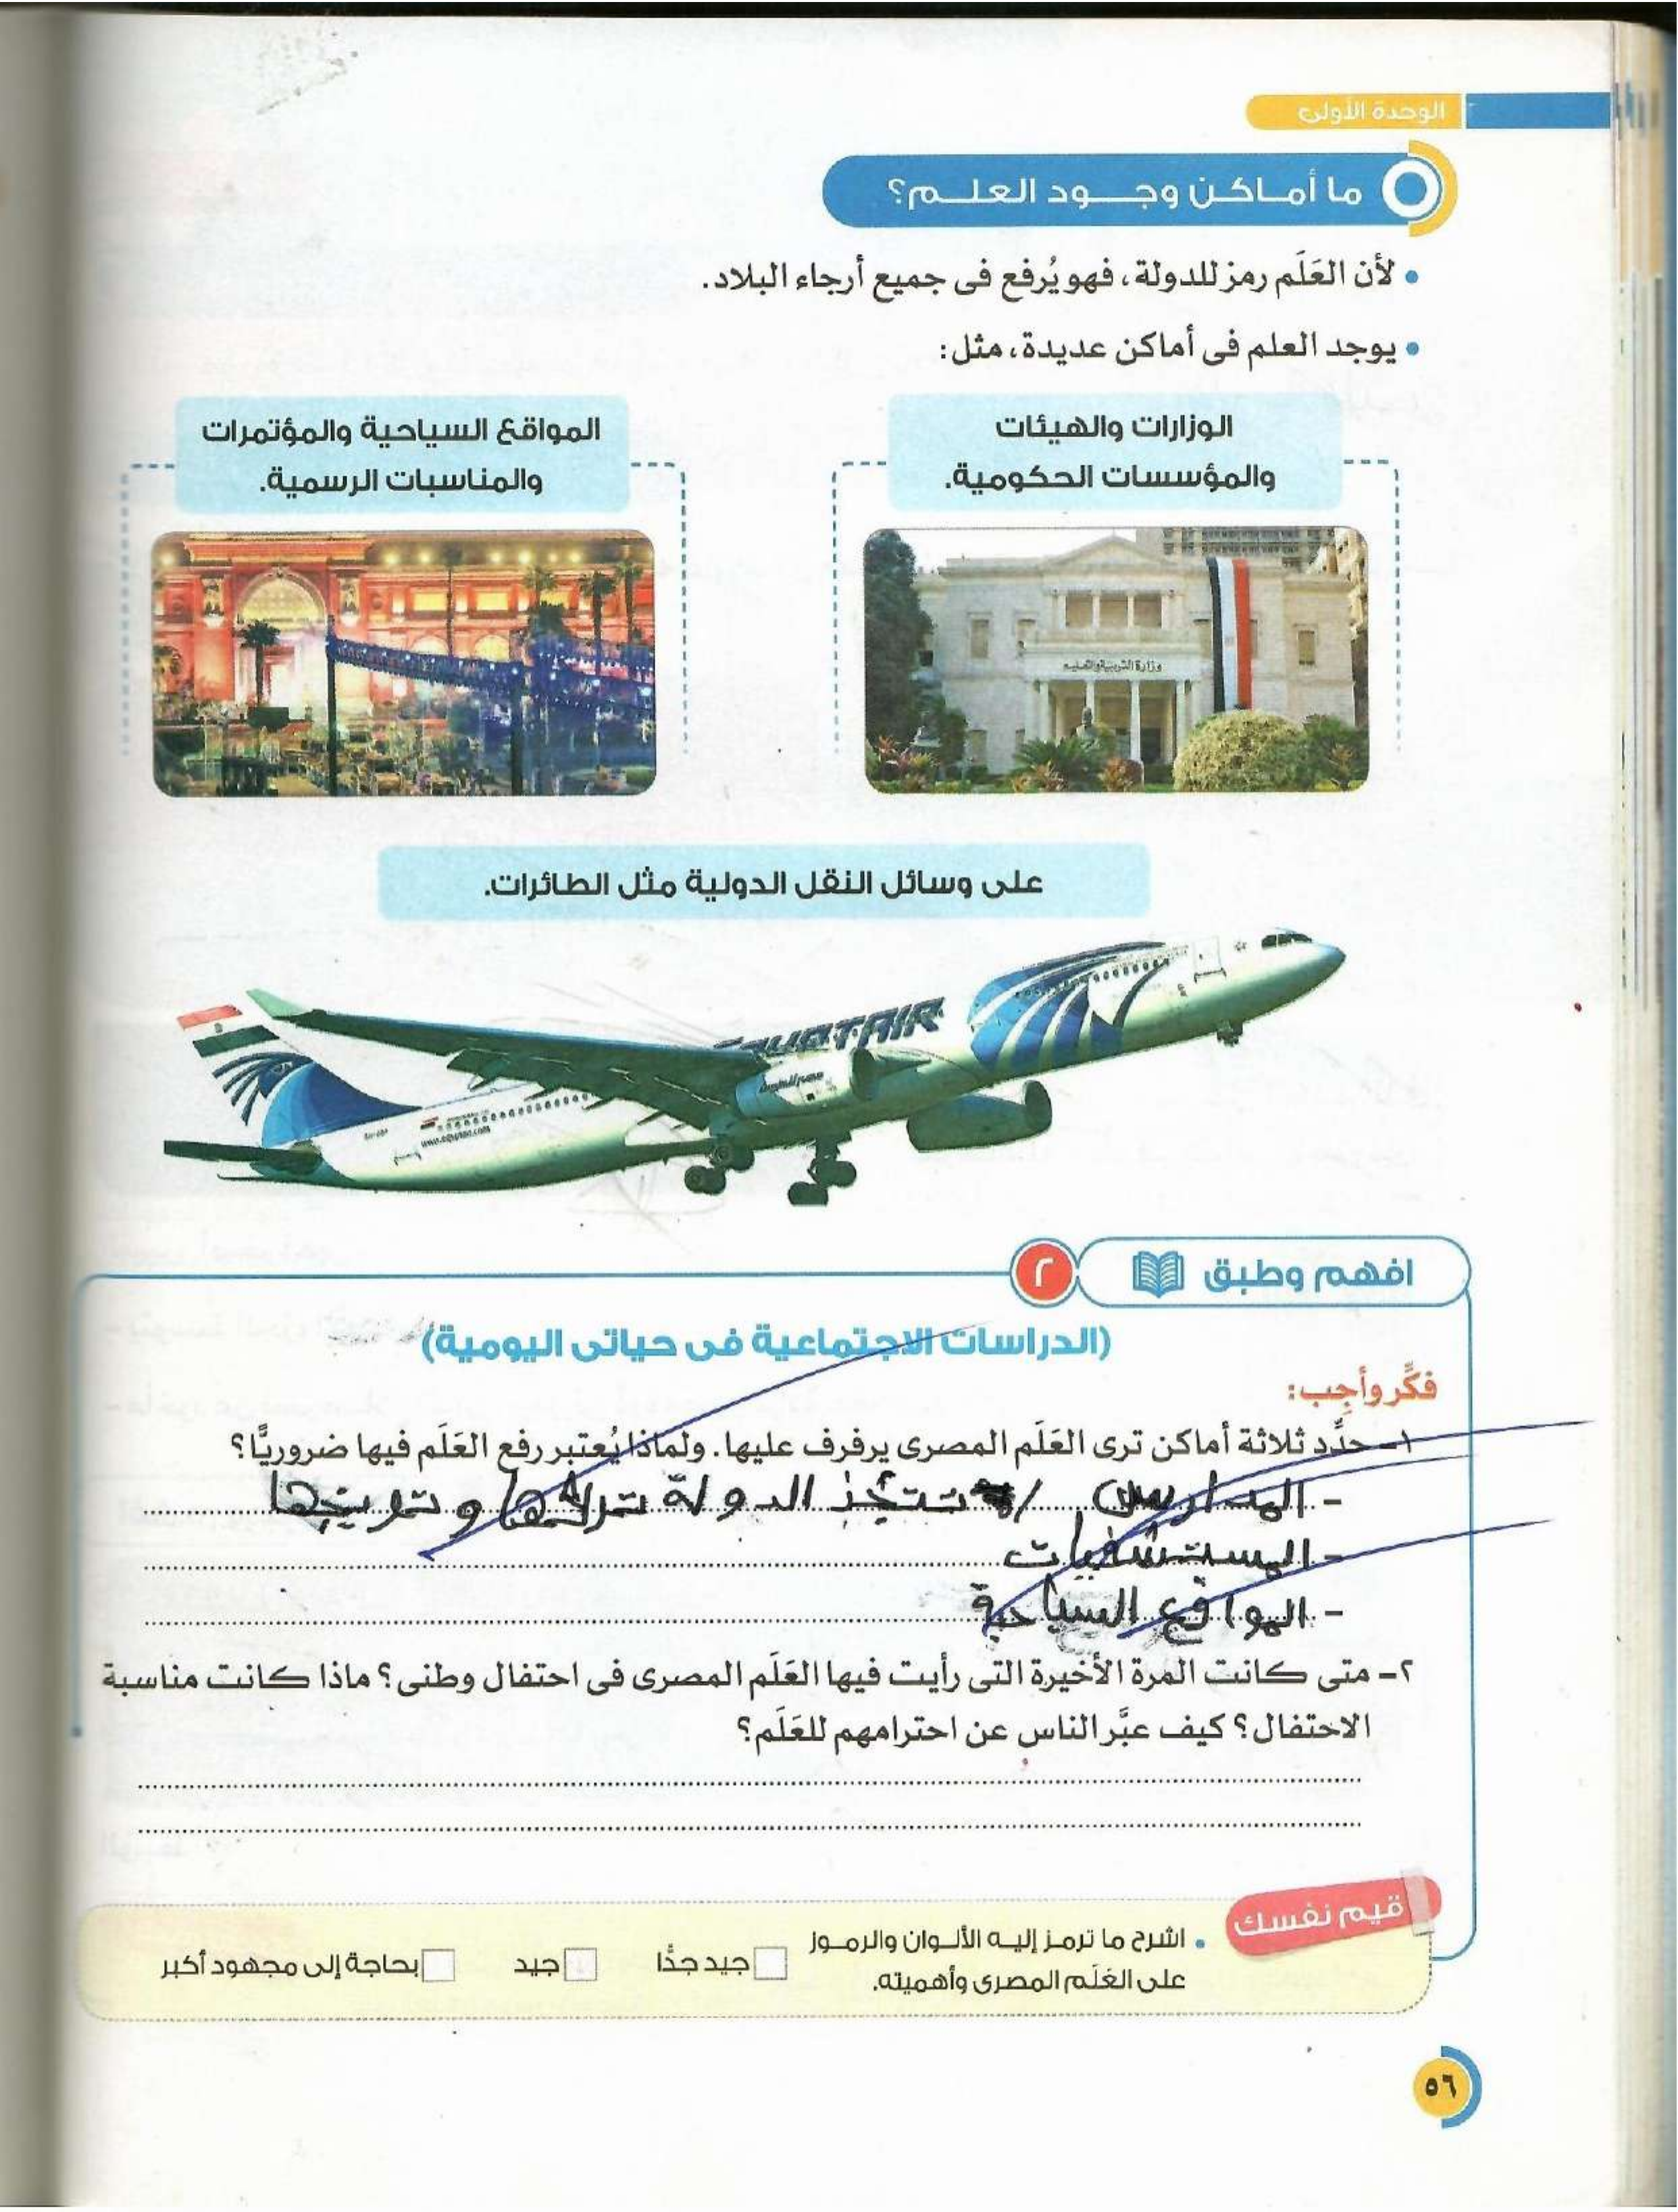 الوحدة الأولى
ما أماكن وجود العلم؟
• لأن العَلَم رمز للدولة، فهو يُرفع فى جميع أرجاء البلاد.
• يوجد العلم فى أماكن عديدة، مثل:
الوزارات والهيئات
والمؤسسات الحكومية.
المواقع السياحية والمؤتمرات
والمناسبات الرسمية.
وزارة التربية والتعليم
على وسائل النقل الدولية مثل الطائرات.
EGYPTAIR
مصر للطيران
www.egyptair.com
افهم وطبق
٢
(الدراسات الاجتماعية فى حياتى اليومية)
فكِّر وأجِب:
١- حدِّد ثلاثة أماكن ترى العَلَم المصرى يرفرف عليها. ولماذا يُعتبر رفع العَلَم فيها ضروريًّا؟
- المدارس / الدولة
- المستشفيات
- المواقع السياحية
٢- متى كانت المرة الأخيرة التى رأيت فيها العَلَم المصرى فى احتفال وطنى؟ ماذا كانت مناسبة
الاحتفال؟ كيف عبَّر الناس عن احترامهم للعَلَم؟
قيم نفسك
• اشرح ما ترمز إليه الألوان والرموز
على العَلَم المصرى وأهميته.
جيد جدًّا
جيد
بحاجة إلى مجهود أكبر
٥٦